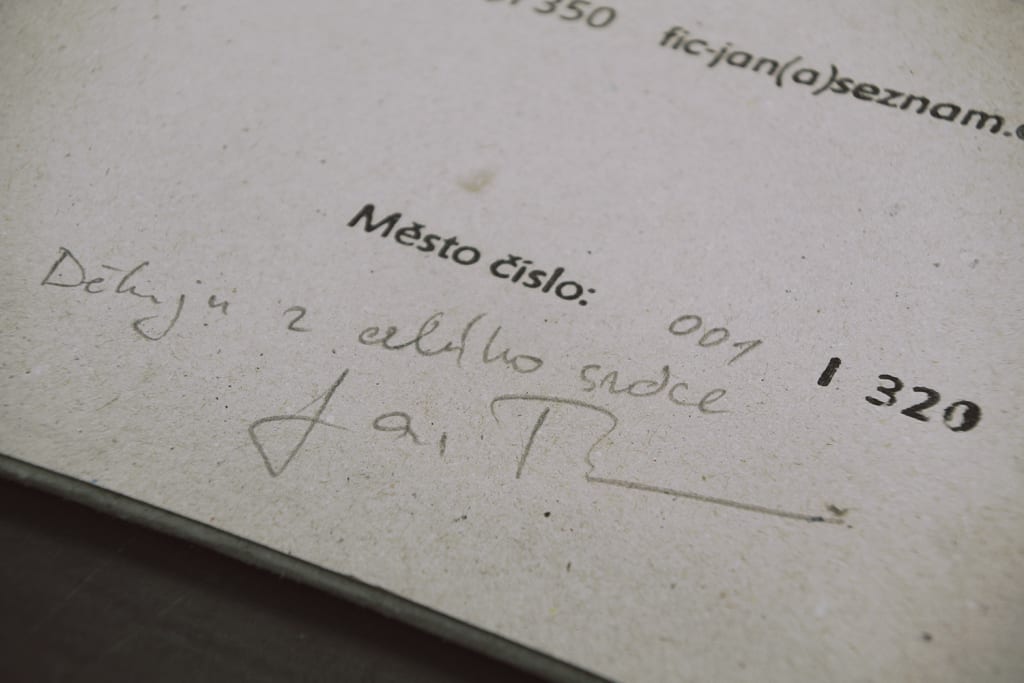 350 fic-jan(a)seznam.
Město číslo: 001 | 320
Děkuji z celého srdce
Jan